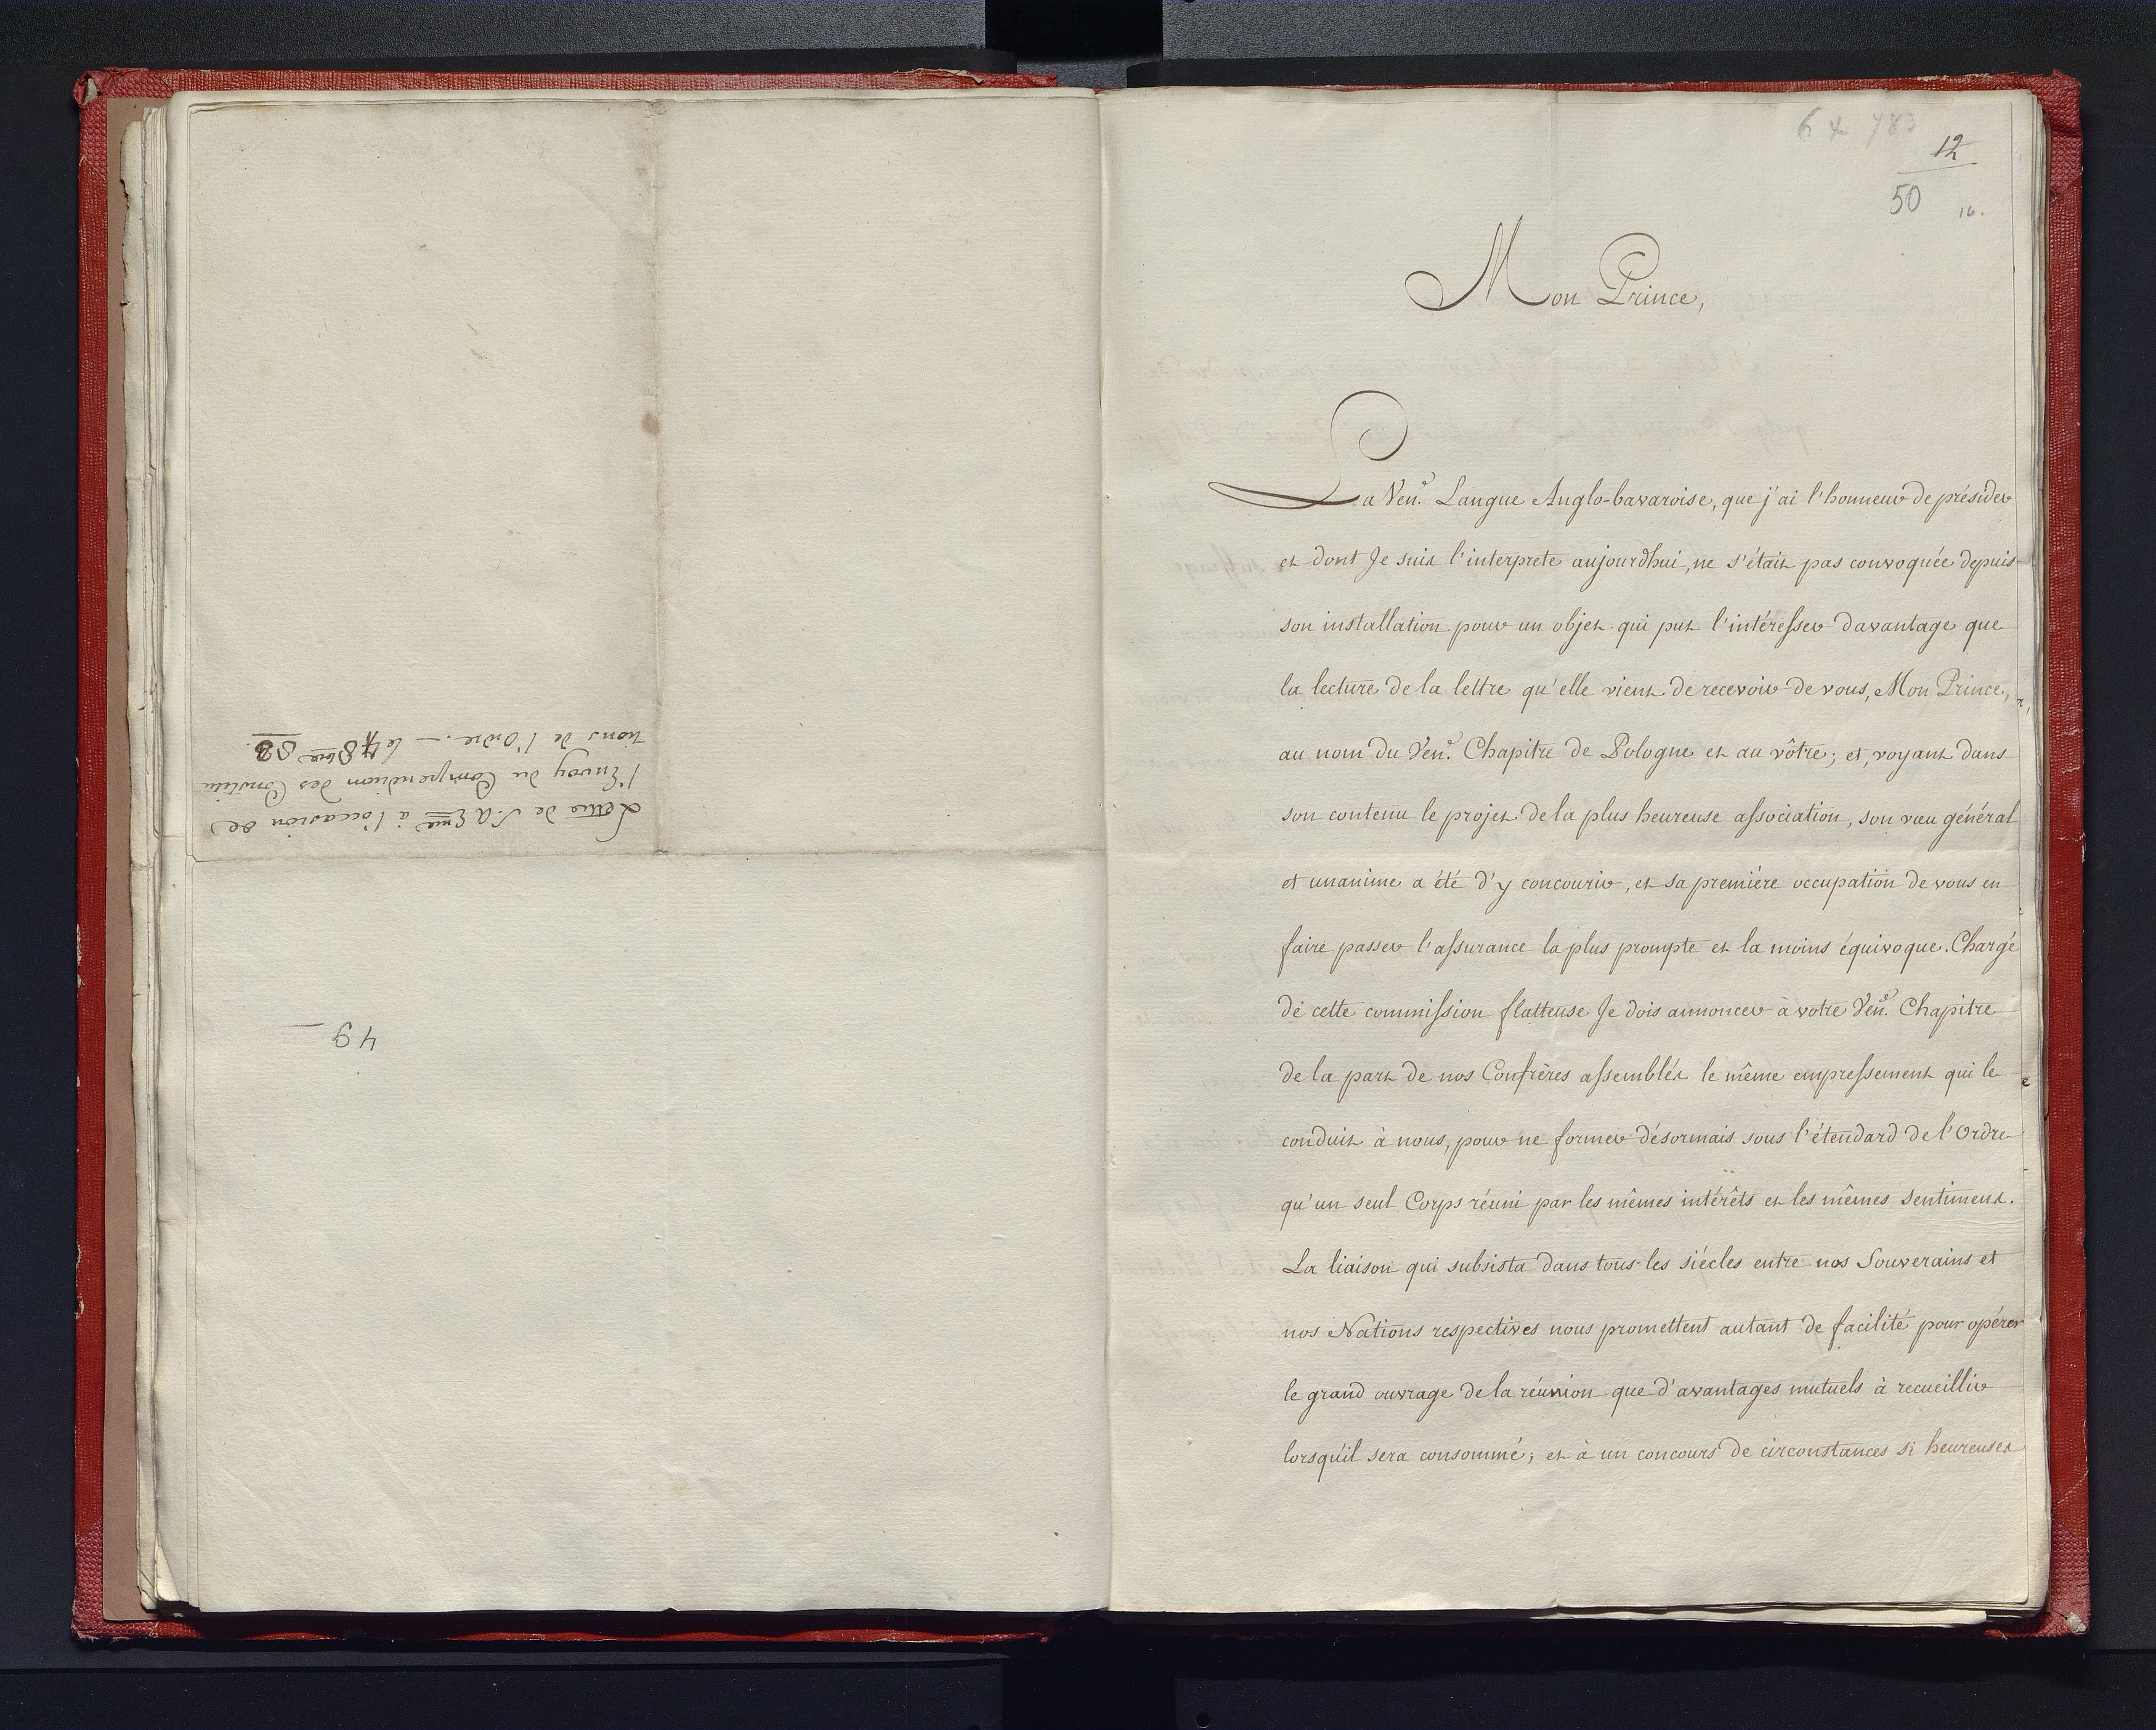 Lettre de S. A. Eme à l'occasion de
l'Envoy du Compendium des Constitu
tions de l'Ordre. — le 4 8bre 82.
49
12
50
16.
Mon Prince,
La Ven.e Langue Anglo-bavaroise, que j'ai l'honneur de présider
et dont Je suis l'interprete aujourdhui, ne s'était pas convoquée depuis
son installation pour un objet qui put l'intéresser davantage que
la lecture de la lettre qu'elle vient de recevoir de vous, Mon Prince,
au nom du Ven.e Chapitre de Pologne et au vôtre; et, voyant dans
son contenu le projet de la plus heureuse association, son vœu général
et unanime a été d'y concourir, et sa premiére occupation de vous en
faire passer l'assurance la plus prompte et la moins équivoque. Chargé
de cette commission flatteuse Je dois annoncer à votre Ven.e Chapitre
de la part de nos Confrères assemblés le même empressement qui le
conduit à nous, pour ne former désormais sous l'étendard de l'Ordre
qu'un seul Corps réuni par les mêmes intérêts et les mêmes sentimens.
La liaison qui subsista dans tous les siécles entre nos Souverains et
nos Nations respectives nous promettent autant de facilité pour opérer
le grand ouvrage de la réunion que d'avantages mutuels à recueillir
lorsqu'il sera consommé; et à un concours de circonstances si heureuses